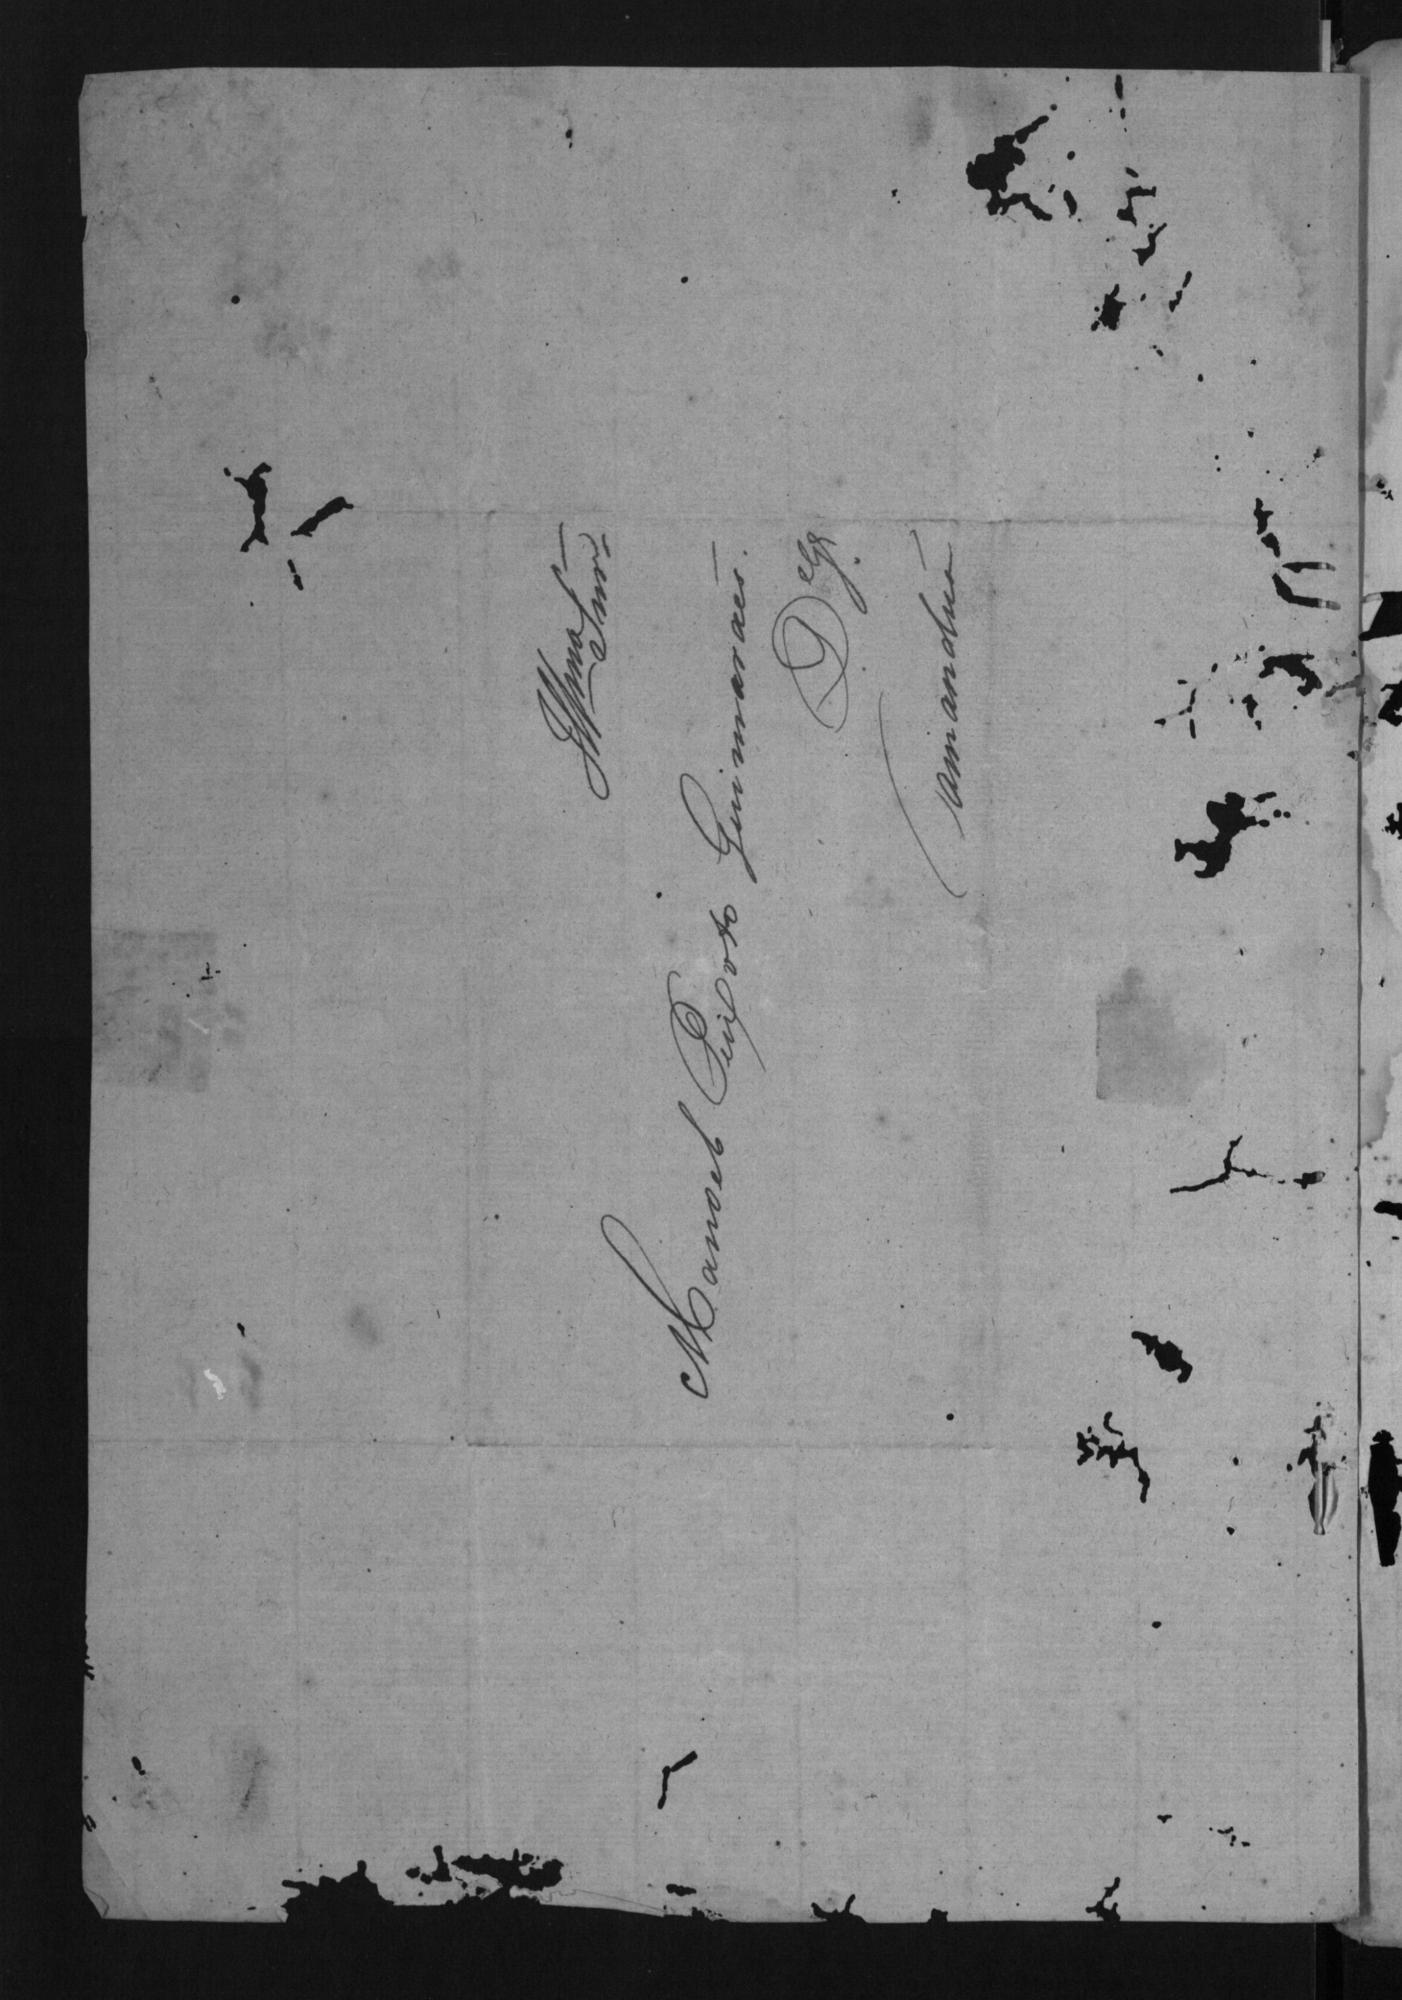 Illmo Snr
Manoel Peixoto Guimaraes.
D Gs
Camandú